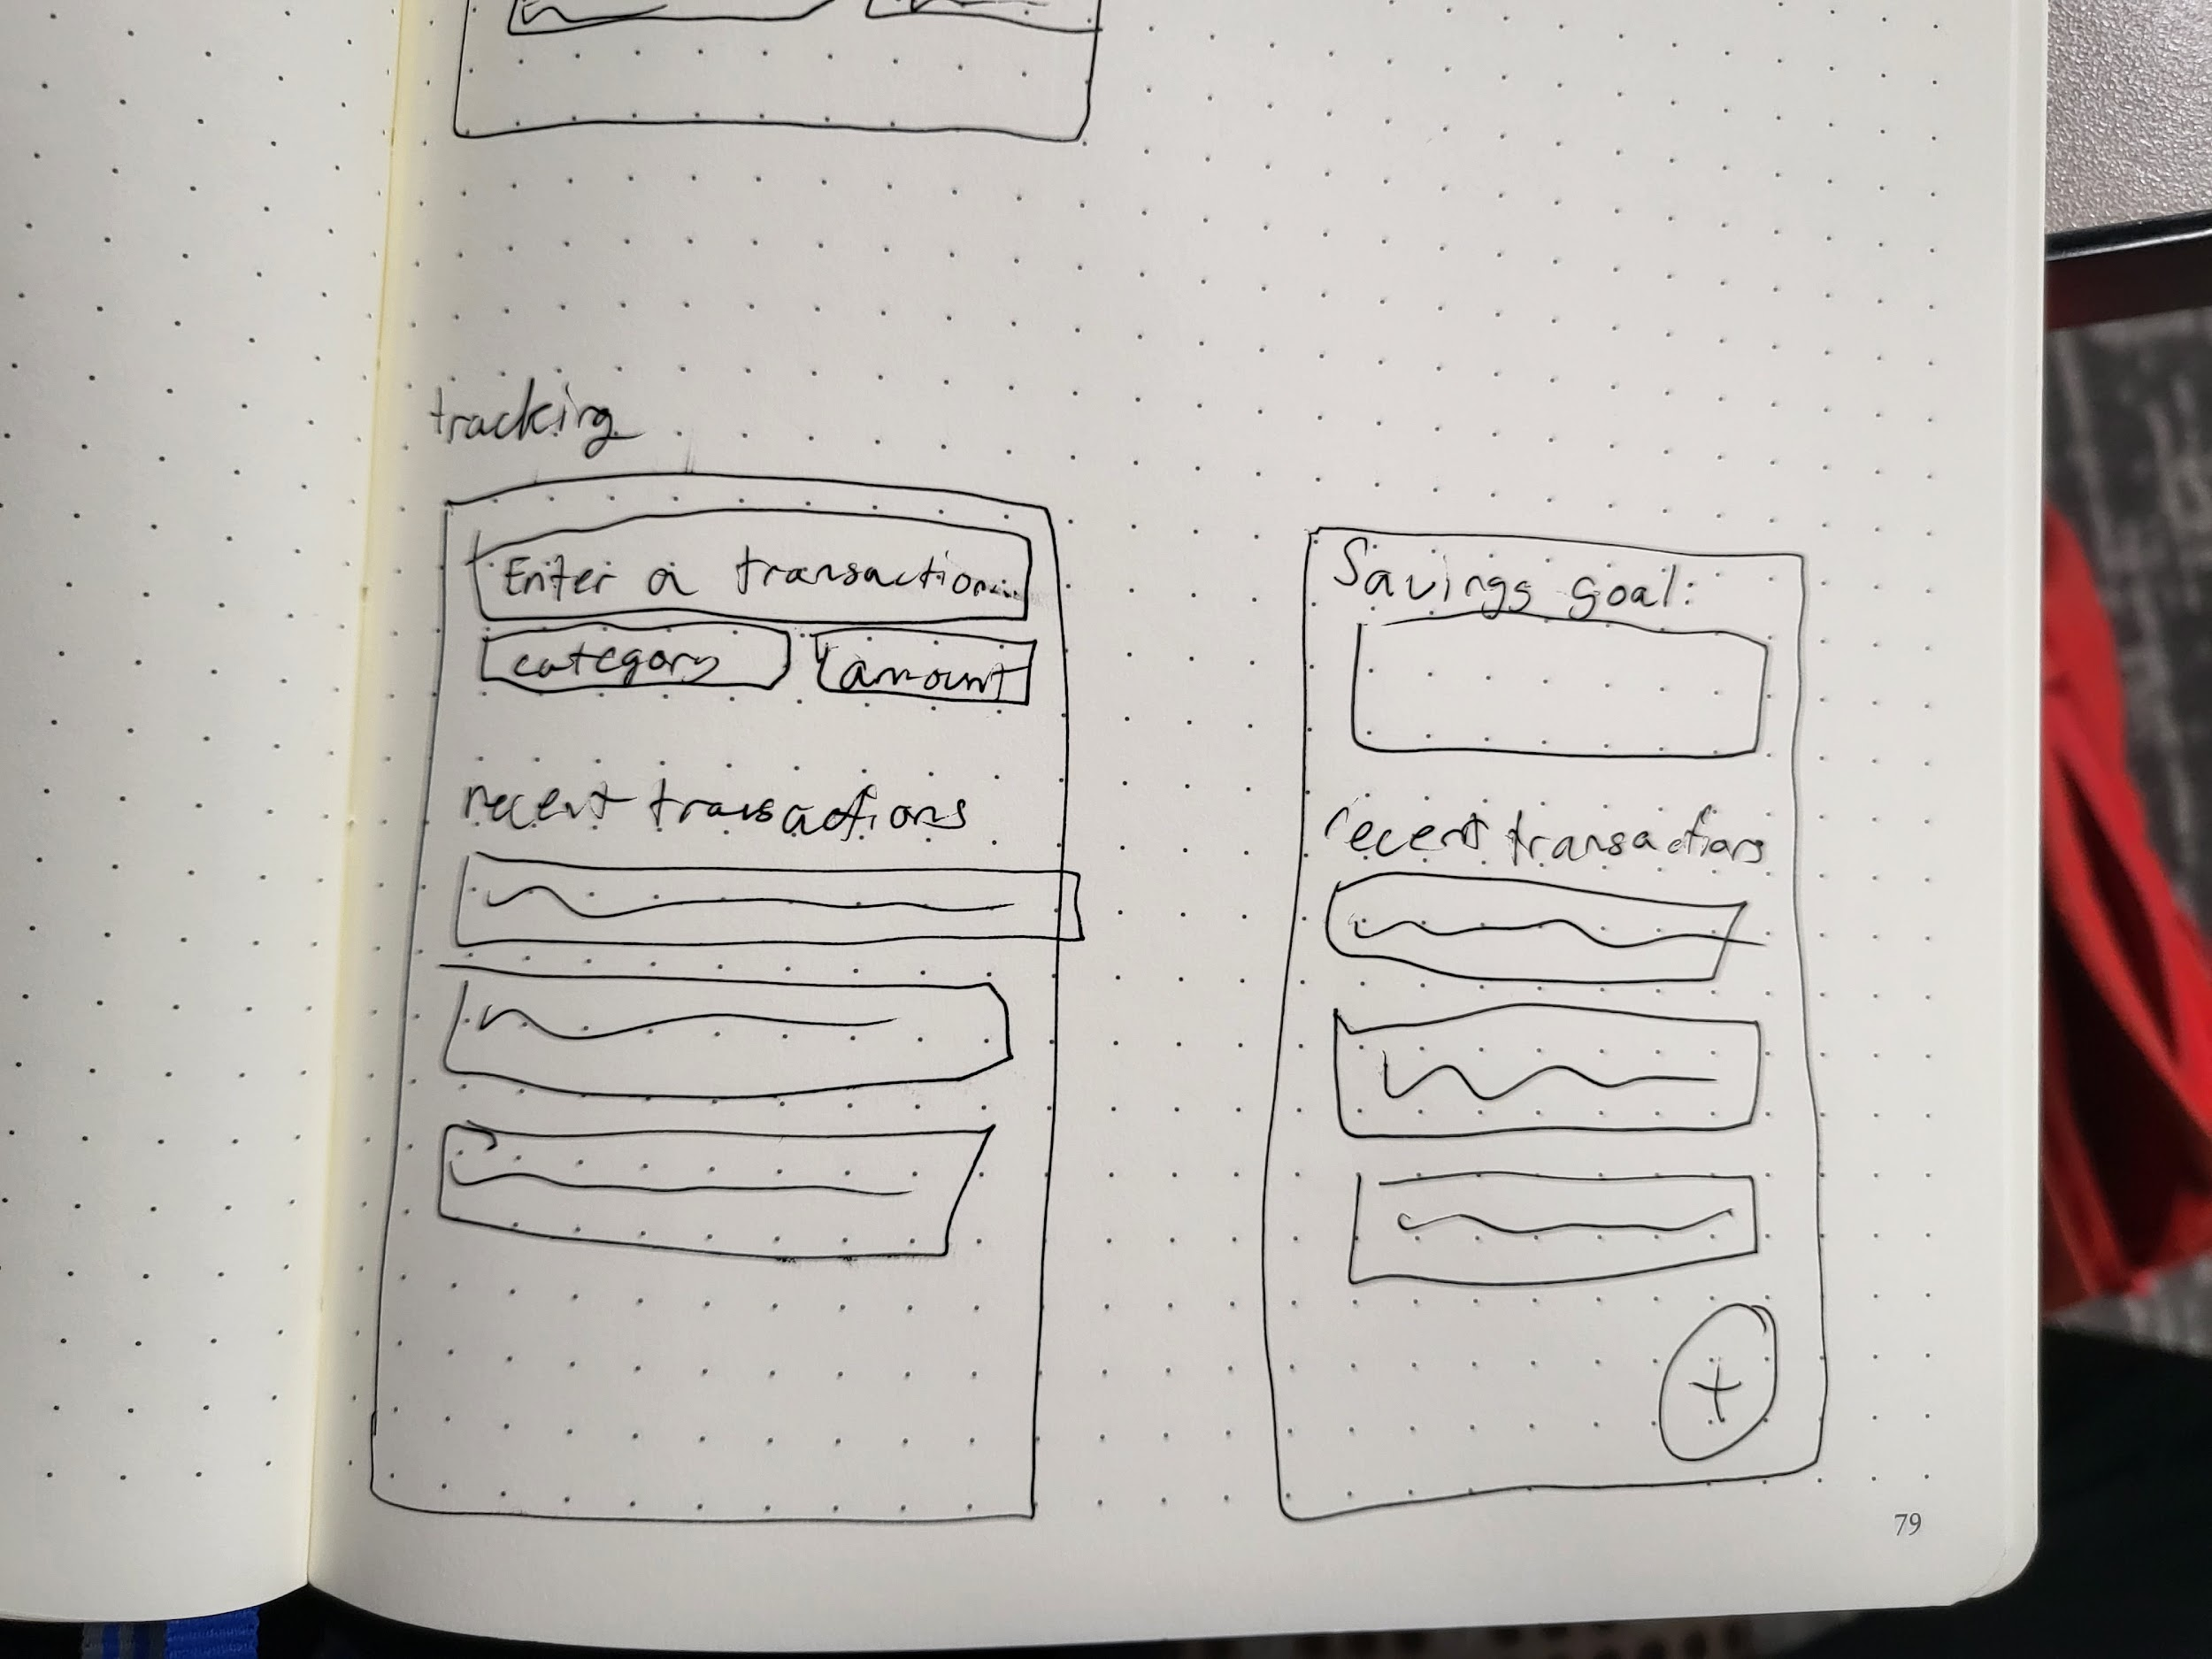 tracking
Enter a transaction...
category amount
recent transactions
Savings goal:
recent transactions
+
79